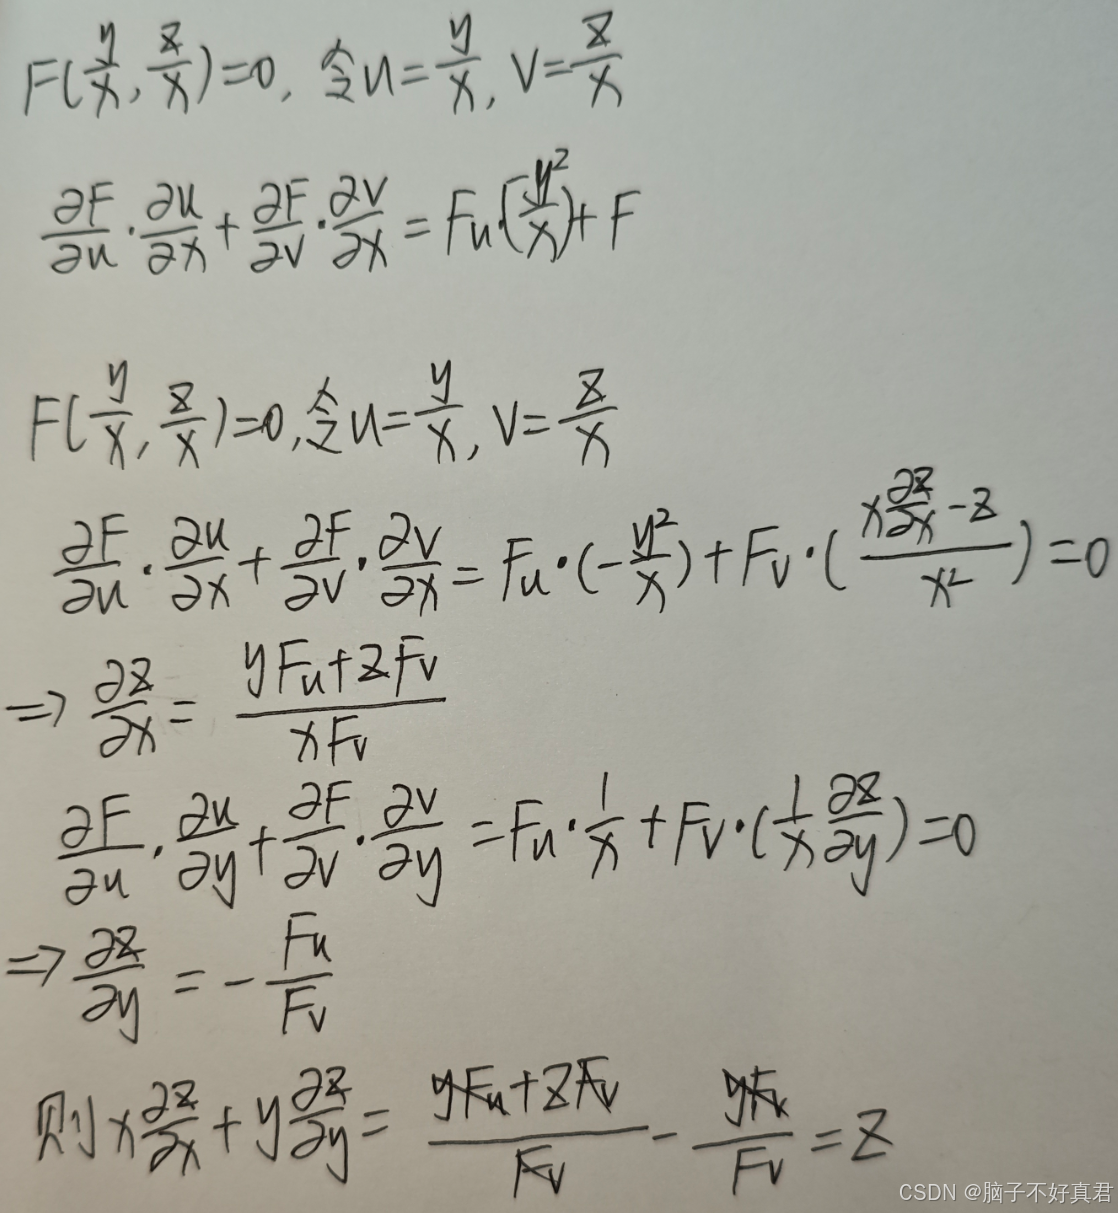 F(y/x, z/x)=0, 令u=y/x, v=z/x
∂F/∂u·∂u/∂x+∂F/∂v·∂v/∂x=Fu·(-y²/x)+F
F(y/x, z/x)=0,令u=y/x, v=z/x
∂F/∂u·∂u/∂x+∂F/∂v·∂v/∂x=Fu·(-y²/x)+Fv·((x∂z/∂x-z)/x²)=0
⇒∂z/∂x=(yFu+zFv)/(xFv)
∂F/∂u·∂u/∂y+∂F/∂v·∂v/∂y=Fu·1/x+Fv·(1/x ∂z/∂y)=0
⇒∂z/∂y=-Fu/Fv
则x∂z/∂x+y∂z/∂y=(yFu+zFv)/Fv-yFv/Fv=z
CSDN @脑子不好真君